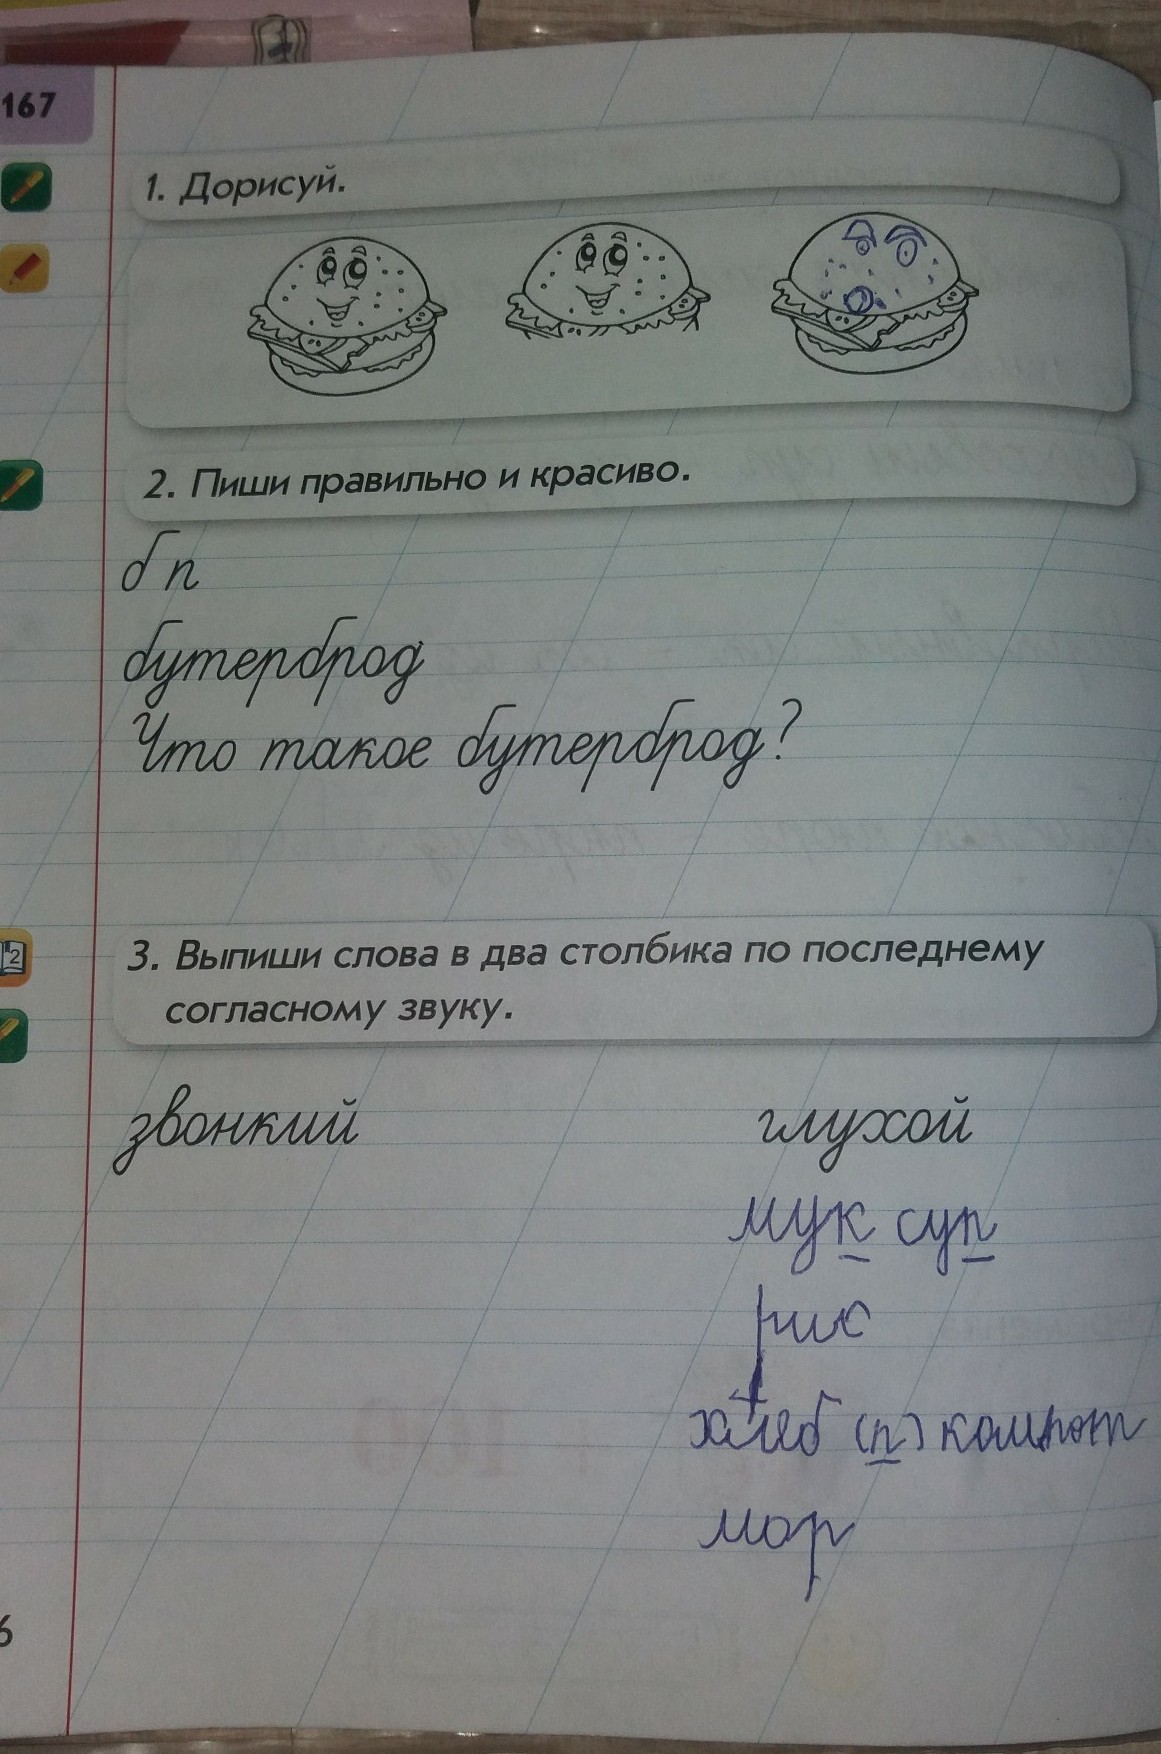 167
1. Дорисуй.
2. Пиши правильно и красиво.
б п
бутерброд
Что такое бутерброд?
2
3. Выпиши слова в два столбика по последнему
согласному звуку.
звонкий глухой
мук суп
рис
хлеб (п) компот
мор
6